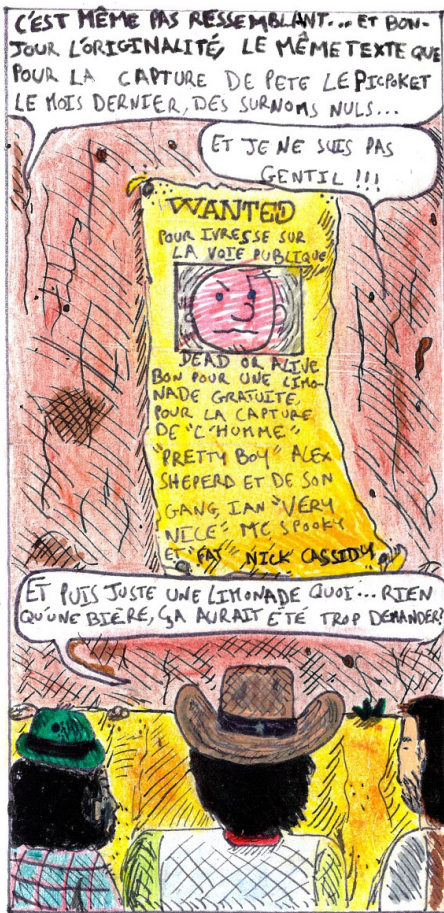 C'EST MÊME PAS RESSEMBLANT... ET BON-
JOUR L'ORIGINALITÉ, LE MÊME TEXTE QUE
POUR LA CAPTURE DE PETE LE PICPOKET
LE MOIS DERNIER, DES SURNOMS NULS...
ET JE NE SUIS PAS
GENTIL !!!
WANTED
POUR IVRESSE SUR
LA VOIE PUBLIQUE
DEAD OR ALIVE
BON POUR UNE LIMO-
NADE GRATUITE,
POUR LA CAPTURE
DE "L'HOMME"
"PRETTY BOY" ALEX
SHEPERD ET DE SON
GANG, IAN "VERY
NICE" MC SPOOKY
ET "FAT" NICK CASSIDY
ET PUIS JUSTE UNE LIMONADE QUOI... RIEN
QU'UNE BIÈRE, ÇA AURAIT ÉTÉ TROP DEMANDER!